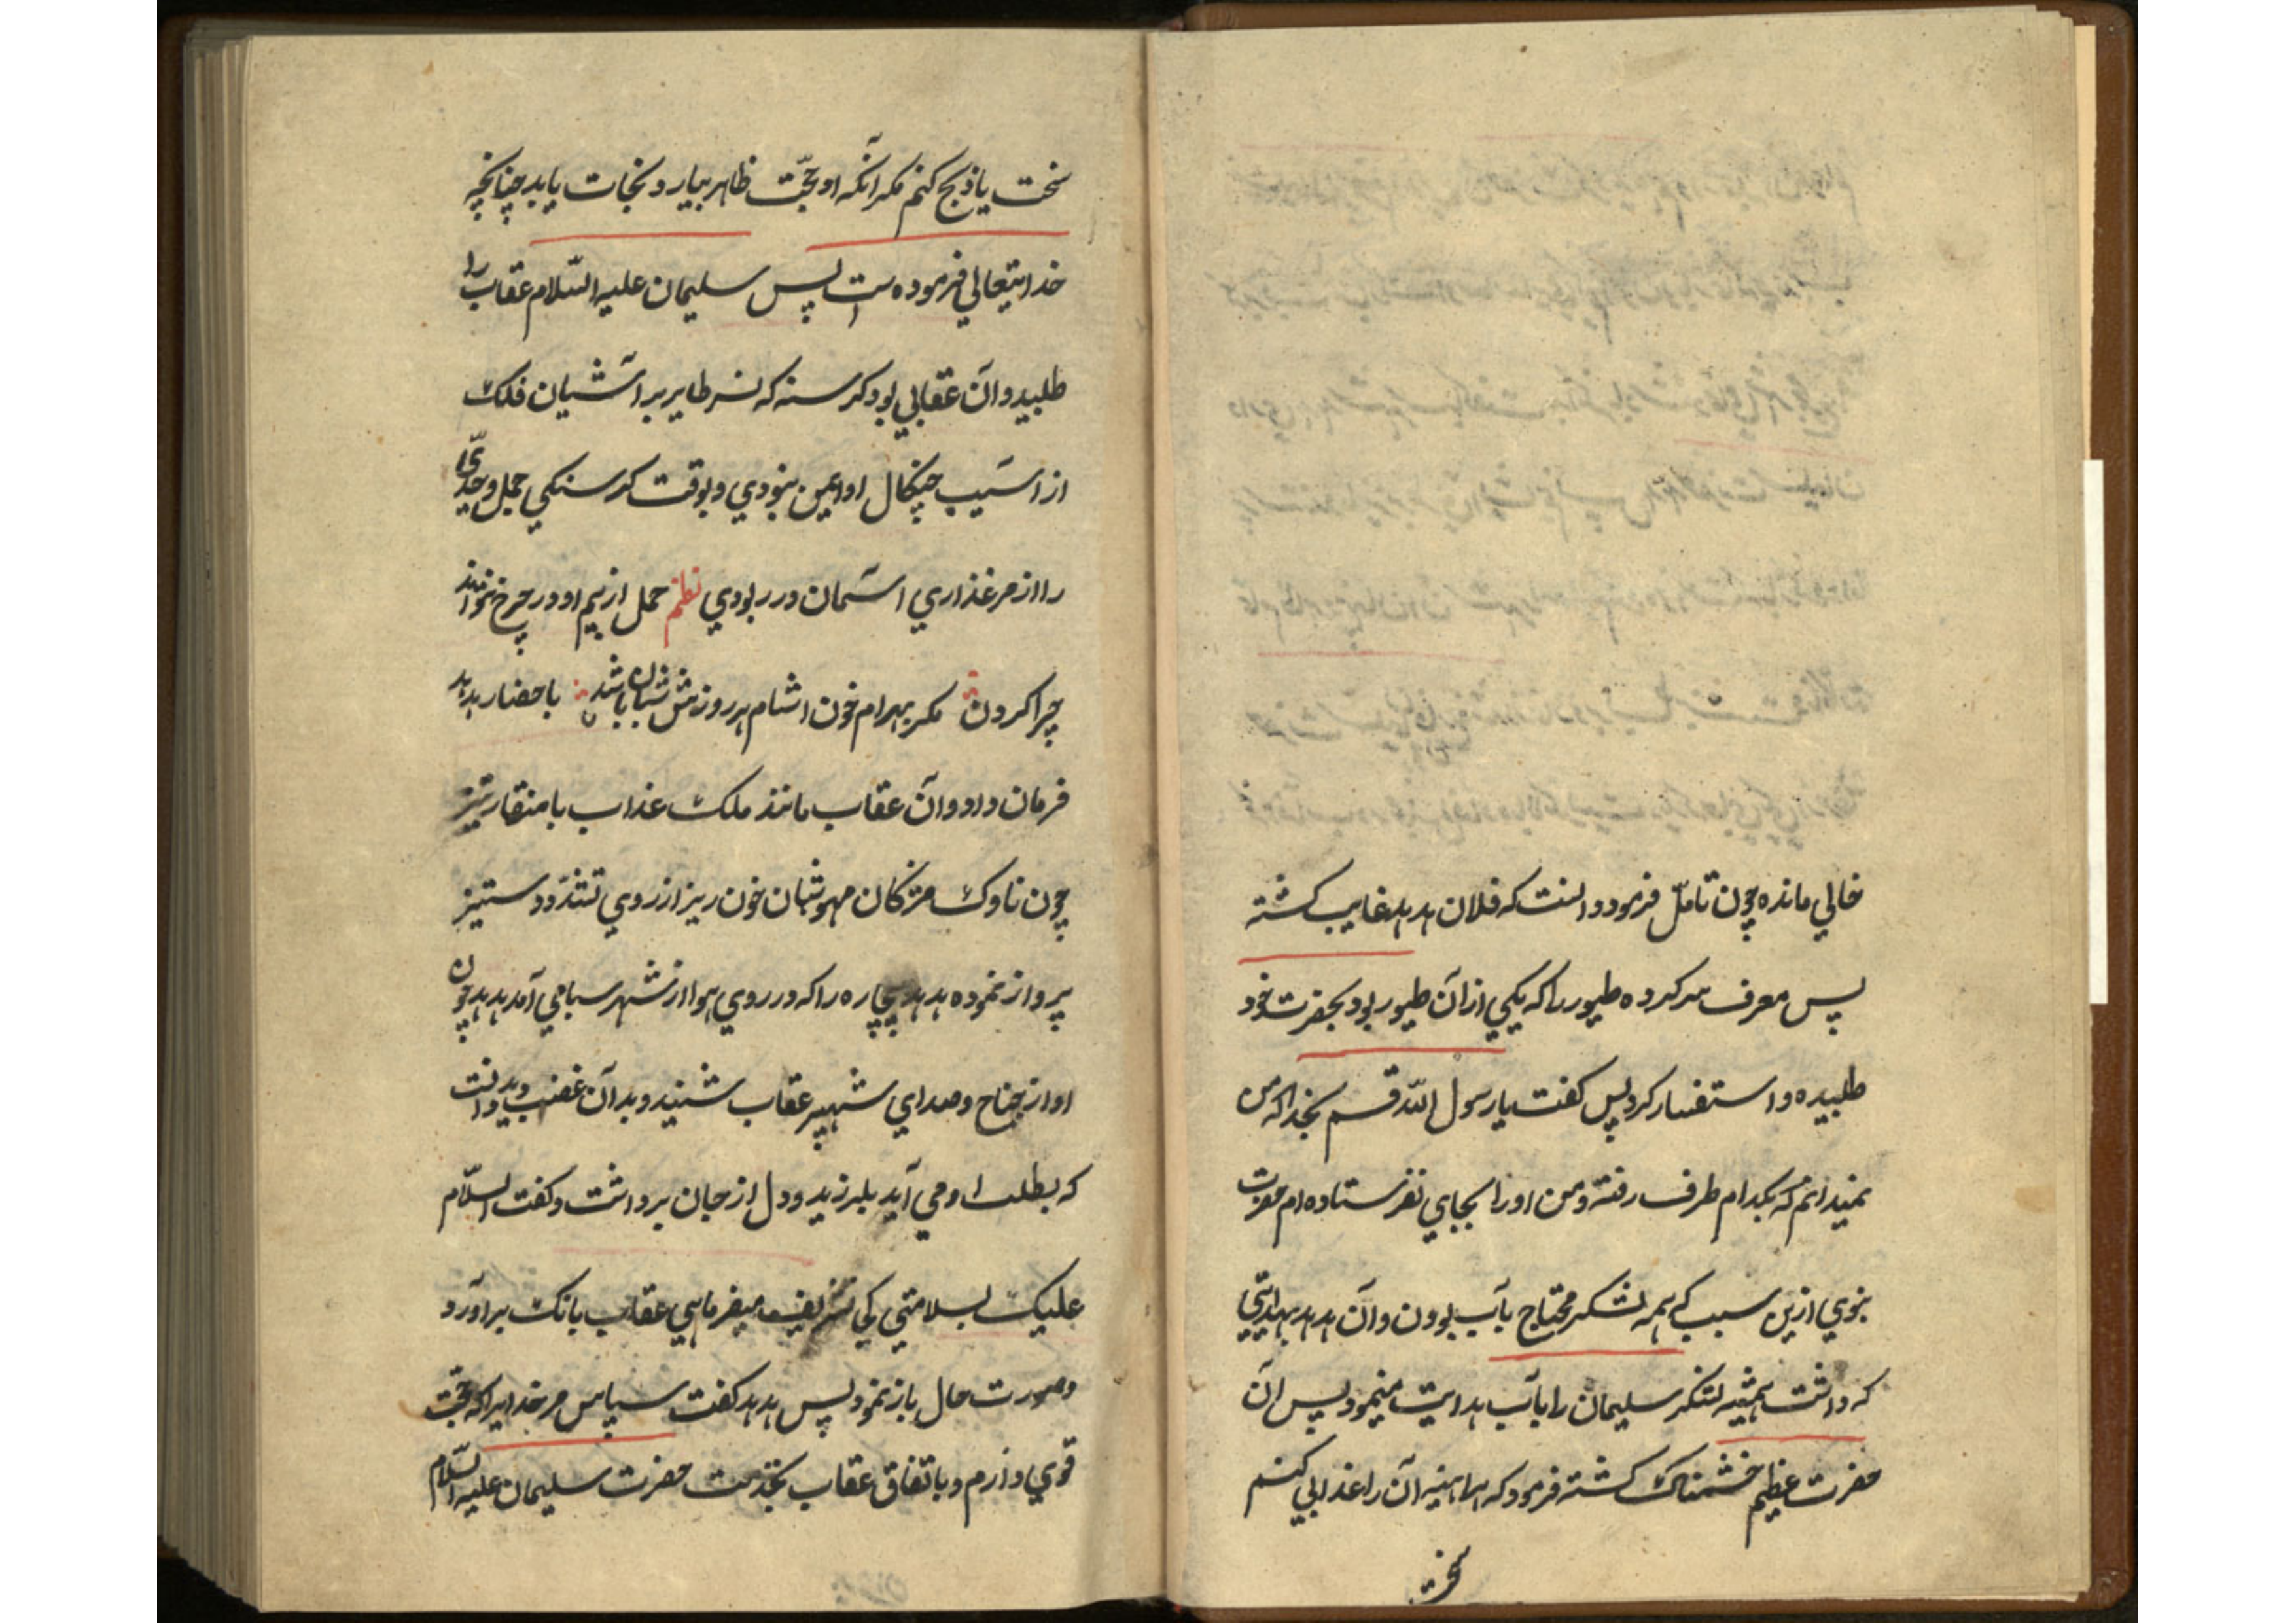 خالي مانده چون تامّل فرمود دانست که فلان هدهد غایب کشته
پس معرف سرکرده طیور را که یکي ازان طیور بود بحضرت خود
طلبیده و استفسار کرد پس کفت یا رسول اللّه قسم بخدا که من
نمیدانم که بکدام طرف رفته و من اورا بجاي نفرستاده ام حضرت
نبوي ازین سبب که همه لشکر محتاج بآب بودن و آن هدهد بهدایتي
که داشت همیشه لشکر سلیمان را بآب هدایت مینمود پس آن
حضرت عظیم خشمناک کشته فرمود که هراینه آن را عذابي کنم
سخت
سخت یا ذبح کنم مکر آنکه او حجّت ظاهر بیارد و نجات یابد چنانچه
خدایتعالي فرموده است پس سلیمان علیه السّلام عقاب را
طلبید و آن عقابي بود کرسنه که نسر طایر بر آشیان فلک
از آسیب چنکال او ایمن نبودي و بوقت کرسنکي حمل و جدّي
را از مرغذاري آسمان در ربودي نظم حمل از بیم او در چرخ نتواند
چرا کردن مکر بهرام خون آشام هر روزش شبان باشد باحضار هدهد
فرمان داد و آن عقاب مانند ملک عذاب با منقار تیز
چون ناوک مژکان مهوشان خون ریز از روي تند و ستیز
پرواز نموده هدهد بیچاره را که در روي هوا از شهر سبا مي آمد هدهد چون
اواز جناح و صداي شهپر عقاب شنید و بدان غضب دید دانست
که بطلب او مي آید بلرزید و دل از جان برداشت و کفت السّلام
علیک بسلامتي کي تشریف میفرمایي عقاب بانک براورد
و صورت حال باز نمود پس هدهد کفت سپاس مر خدایرا که حجّت
قوي دارم و باتفاق عقاب بخدمت حضرت سلیمان علیه السّلام